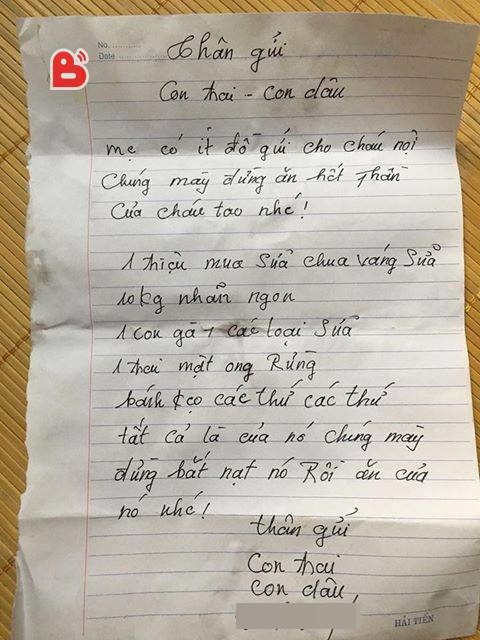 No. ...........
Date ...........
B
Thân gửi
Con trai - con dâu
mẹ có ít đồ gửi cho cháu nội
Chúng mày đừng ăn hết phần
Của cháu tao nhé!
1 triệu mua sữa chua váng sữa
10kg nhãn ngon
1 con gà + các loại sữa
1 chai mật ong Rừng
bánh kẹo các thứ các thứ
tất cả là của nó chúng mày
đừng bắt nạt nó Rồi ăn của
nó nhé!
thân gửi
Con trai
Con dâu,
HẢI TIẾN